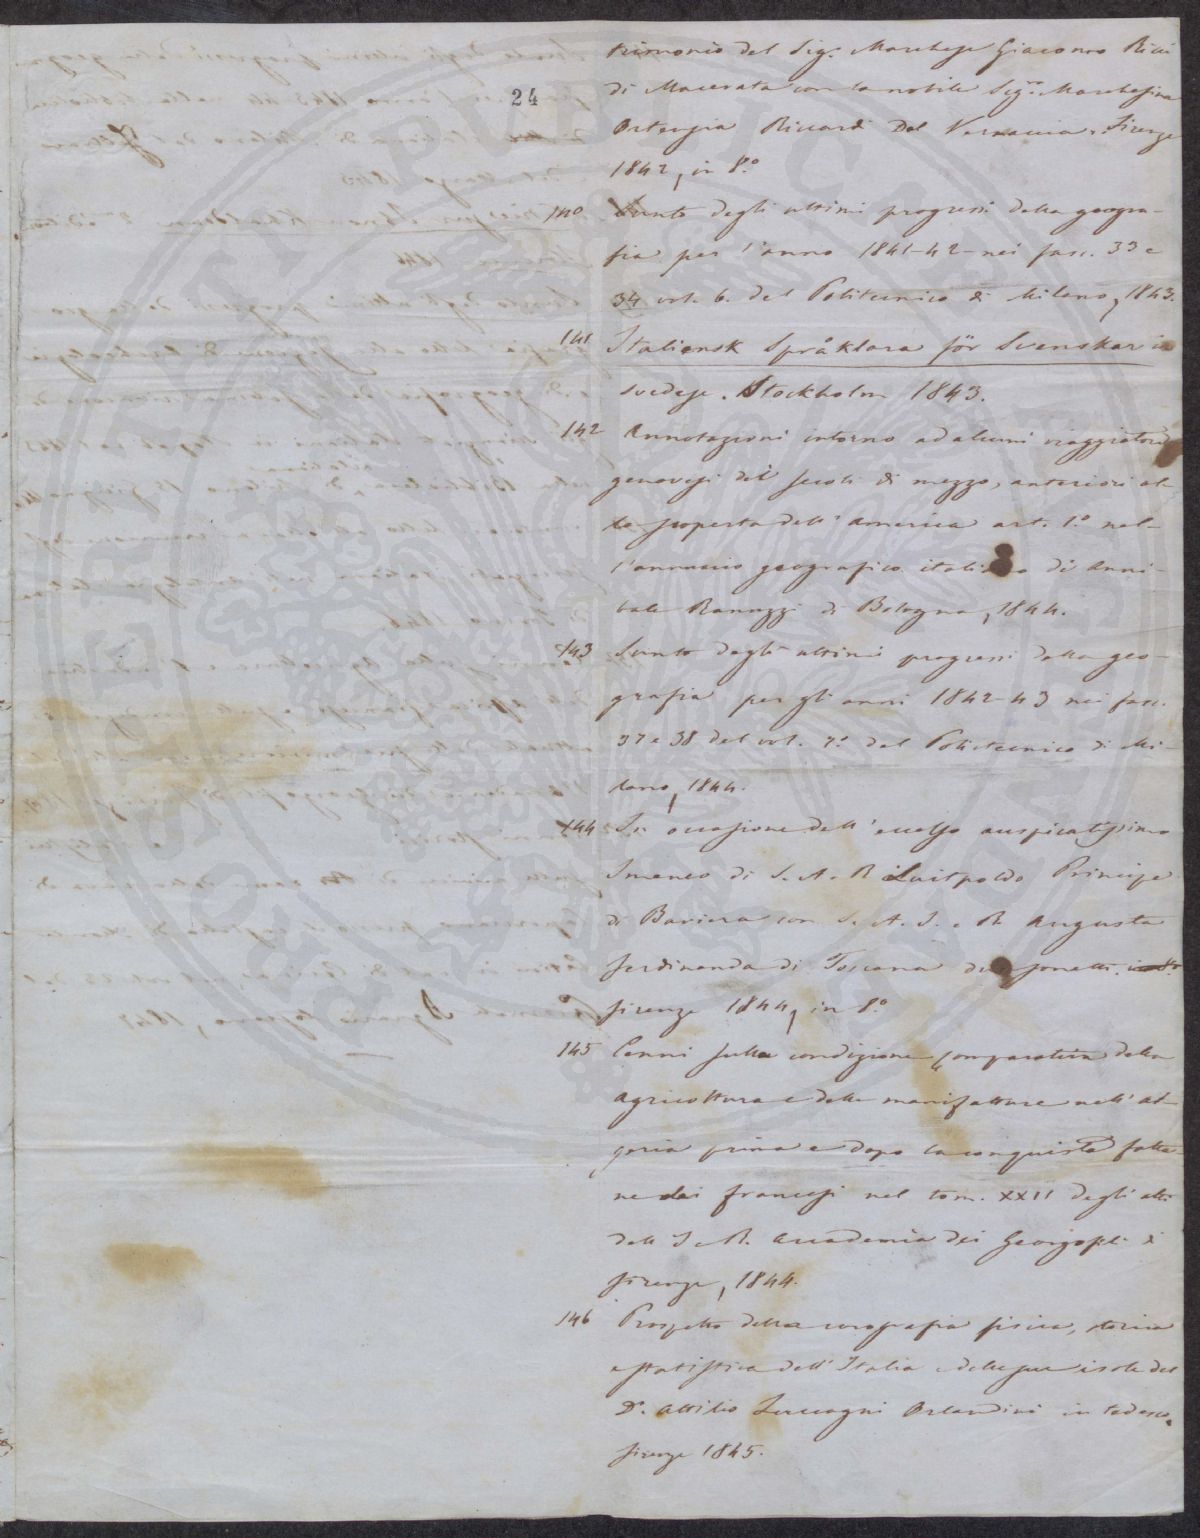 24
trimonio del Sig. Marchese Giacomo Ricci
di Macerata con la nobile Sig.ra Marchesina
Ortensia Riccardi Del Vernaccia. Firenze
1842, in 8.º
140 Sunto degli ultimi progressi della geogra-
fia per l'anno 1841-42 - nei fasc. 33 e
34 vol. 6. del Politecnico di Milano, 1843.
141 Italiensk Språklara för Svenskar in
svedese. Stockholm 1843.
142 Annotazioni intorno ad alcuni viaggiatori
genovesi dei secoli di mezzo, anteriori al-
la scoperta dell'America art. 1.º nel-
l'annuario geografico italiano di Anni-
bale Ranuzzi di Bologna, 1844.
143 Sunto degli ultimi progressi della geo-
grafia per gli anni 1842-43 nei fasc.
37 e 38 del vol. 7.º del Politecnico di Mi-
lano, 1844.
144 In occasione dell'eccelso auspicatissimo
Imeneo di S. A. R. Luitpoldo Principe
di Baviera con S. A. I. e R. Augusta
Ferdinanda di Toscana sonetti. in 8.º
Firenze 1844, in 8.º
145 Cenni sulla condizione comparativa della
agricoltura e delle manifatture nell'al-
geria prima e dopo la conquista fatta-
ne dai francesi nel tom. XXII degli atti
dell'I. e R. Accademia dei Georgofili di
Firenze, 1844.
146 Prospetto della corografia fisica, storica
e statistica dell'Italia e delle sue isole del
D.r Attilio Zuccagni Orlandini in tedesco.
Firenze 1845.